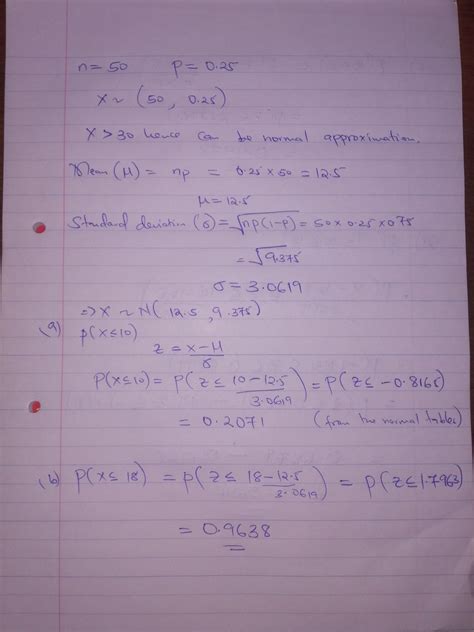 n = 50 p = 0.25
X ~ (50, 0.25)
X > 30 hence can be normal approximation.
Mean (μ) = np = 0.25 × 50 = 12.5
μ = 12.5
Standard deviation (σ) = √np(1-p) = 50 × 0.25 × 0.75
= √9.375
σ = 3.0619
⇒ X ~ N( 12.5, 9.375)
(a) p(x≤10)
z = x-μ/σ
P(x≤10) = P(z ≤ 10-12.5/3.0619) = P(z ≤ -0.8165)
= 0.2071 (from the normal tables)
(b) P(x≤ 18) = p(z ≤ 18-12.5/3.0619) = P(z ≤ 1.7963)
= 0.9638